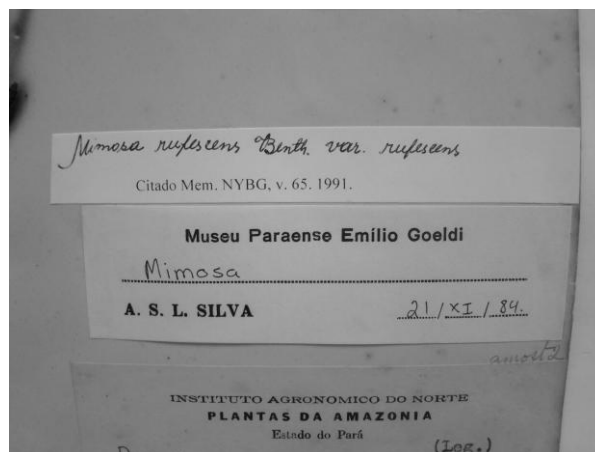 Mimosa rufescens Benth. var. rufescens
Citado Mem. NYBG, v. 65. 1991.
Museu Paraense Emílio Goeldi
Mimosa
A. S. L. SILVA 21/XI/84.
INSTITUTO AGRONOMICO DO NORTE
PLANTAS DA AMAZONIA
Estado do Pará